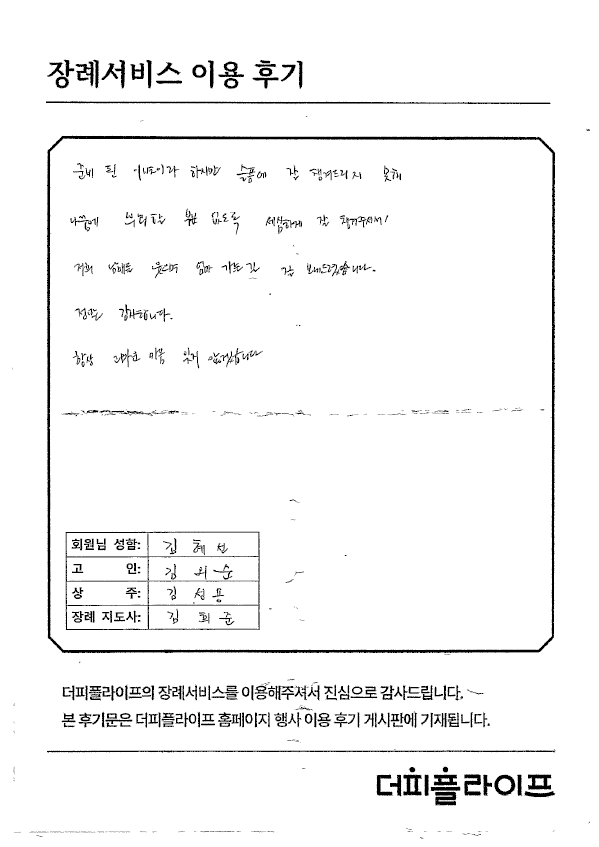 장례서비스 이용 후기
준비 된 이별이라 하지만 슬픔에 잘 챙겨드리지 못해
나중에 후회할 없도록 세심하게 잘 챙겨주셔서!
저희 웃으며 엄마 가는 길 잘 보내드렸습니다.
정말 감사합니다.
항상 고마운 마음 잊지 않겠습니다
회원님 성함: 김혜선
고 인: 김외순
상 주: 김선용
장례 지도사: 김회준
더피플라이프의 장례서비스를 이용해주셔서 진심으로 감사드립니다.
본 후기문은 더피플라이프 홈페이지 행사 이용 후기 게시판에 기재됩니다.
더피플라이프